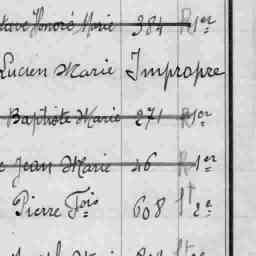 Honoré Marie 384 R 1er
Lucien Marie Impropre
Baptiste Marie 271 R 1er
Jean Marie 46 R 1er
Pierre Fois 608 st 2e